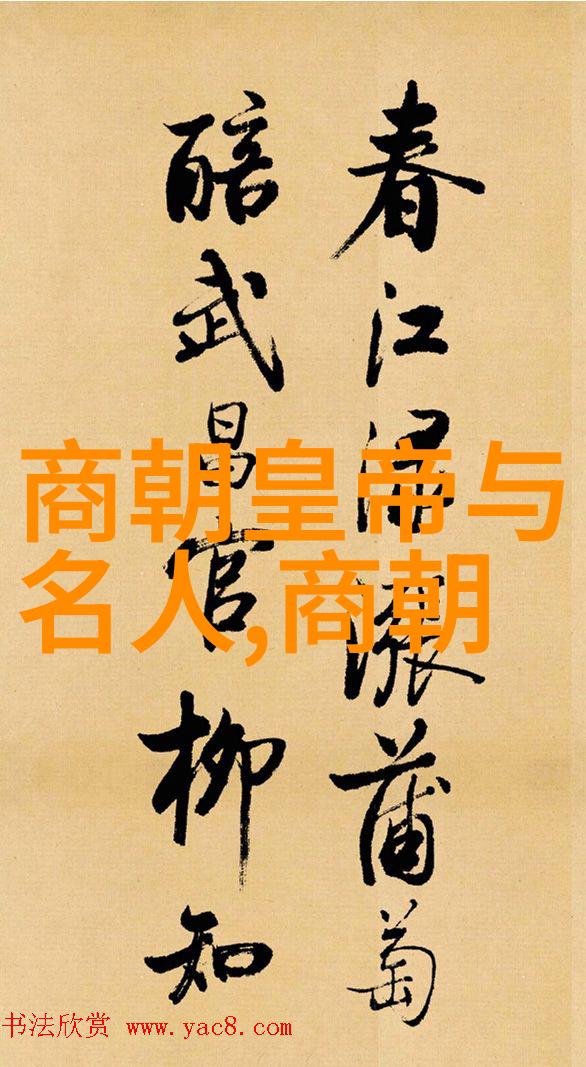 春江渌漲蒲萄
醅武昌官柳知
商朝皇帝与
名人,商朝
书法欣赏 www.yac8.com